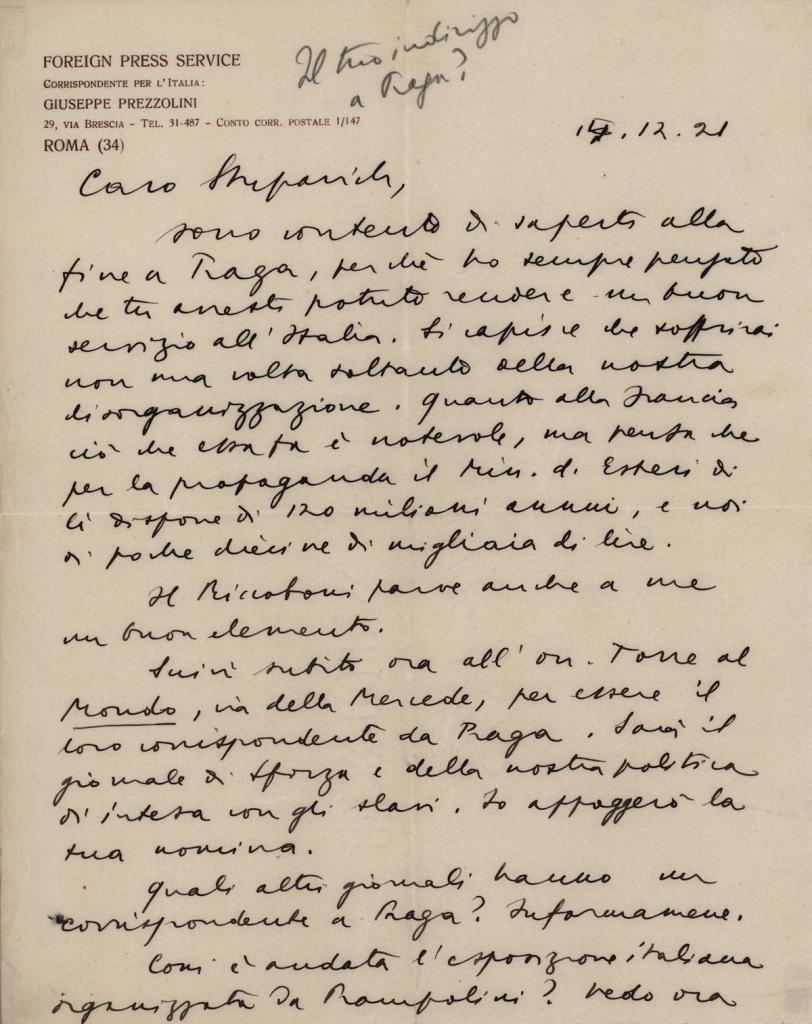 FOREIGN PRESS SERVICE
CORRISPONDENTE PER L'ITALIA:
GIUSEPPE PREZZOLINI
29, VIA BRESCIA - TEL. 31-487 - CONTO CORR. POSTALE 1/147
ROMA (34)
Il tuo indirizzo
a Praga?
.12.21
Caro Stuparich,
sono contento di saperti alla
fine a Praga, perchè ho sempre pensato
che tu avresti potuto rendere un buon
servizio all'Italia. Si capisce che soffrirai
non una volta soltanto della nostra
disorganizzazione. Quanto alla Francia
ciò che essa fa è notevole, ma pensa che
per la propaganda il Min. d. Esteri di
lì dispone di 120 milioni annui, e noi
di poche diecine di migliaia di lire.
Il Riccoboni parve anche a me
un buon elemento.
Scrivi subito ora all'on. Torre al
Mondo, via della Mercede, per essere il
loro corrispondente da Praga. Sarà il
giornale di Sforza e della nostra politica
di intesa con gli slavi. Io appoggerò la
tua nomina.
Quali altri giornali hanno un
corrispondente a Praga? Informamene.
Com'è andata l'esposizione italiana
organizzata da Rampolini? Vedo ora